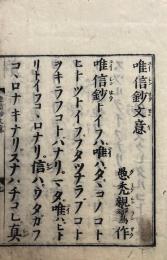 唯信鈔文意
愚禿親鸞作
唯信鈔トイフハ唯ハタヽコノコト
ヒトツトイフフタツナラフコト
ヲキラフコトハナリマタ唯ハヒト
リトイフコヽロナリ信ハウタカフ
コヽロナキナリスナハチコレ真